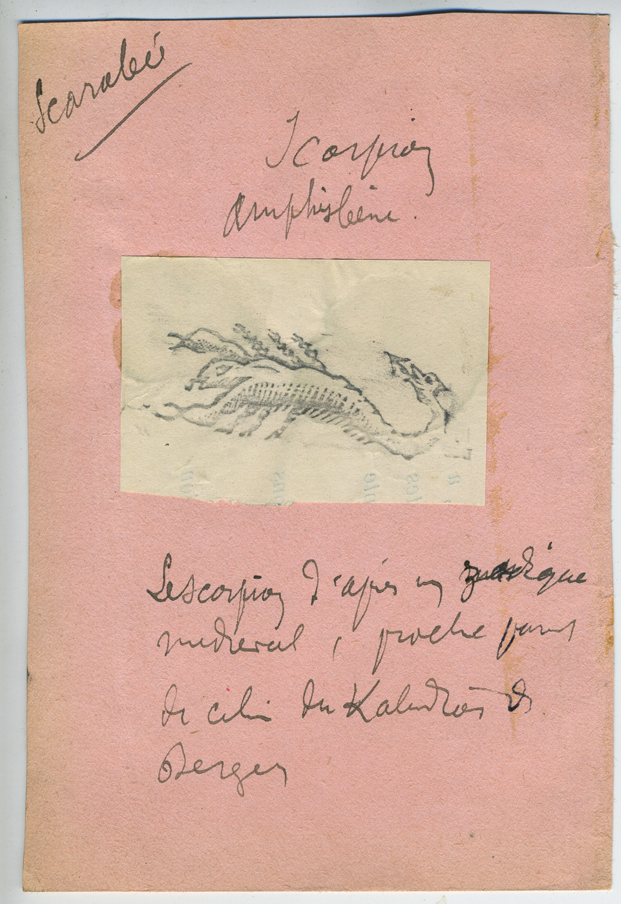 Scarabée
Scorpion
Amphisbène.
Le scorpion d'après un zodiaque
médiéval, proche parent
de celui du Kalendrier des
Bergers